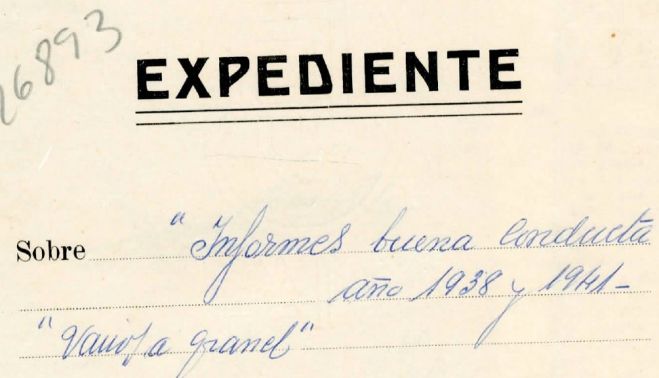 26893
EXPEDIENTE
Sobre " Informes buena conducta
año 1938 y 1941-
"Varios a granel"